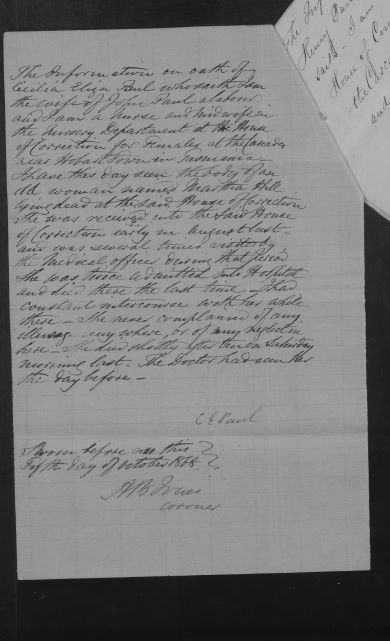 The Information on oath of
Cecilia Eliza Paul who saith I am
the wife of John Paul a laborer
and I am a nurse and Midwife in
the nursery Department at the House
of Correction for Females at the Cascades
near Hobart Town in Tasmania.
I have this day seen the body of an
old woman named Martha Hill
lying dead at the said House of Correction
She was received into the said House
of Correction early in August last
and was several times visited by
the Medical officer during that period
She was twice admitted into Hospital
and died there the last time – I had
constant intercourse with her while
there – She never complained of any
illusage any where, or of any neglect in
here – She died shortly after ten on Saturday
morning last – The Doctor had seen her
the day before –
C E Paul
Sworn before me this
Fifth day of October 1868
A B Jones
Coroner
The Inf
Henry
saith I am
House of Cor
the Casc
and